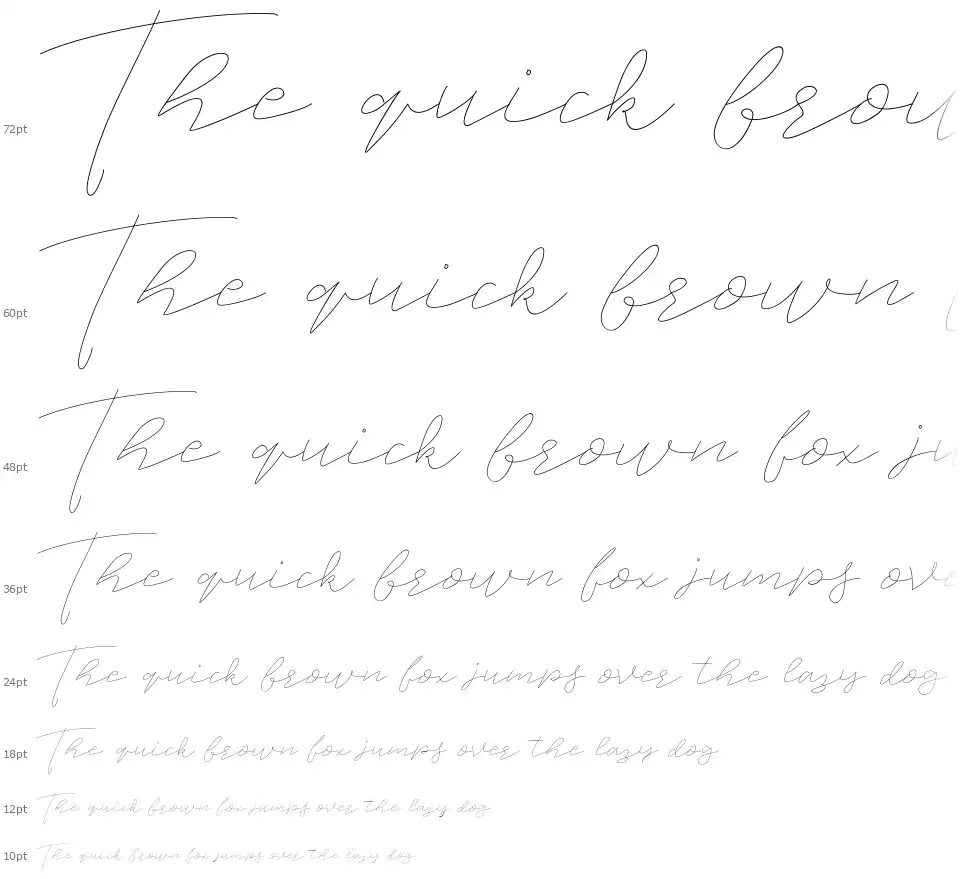 72pt The quick brou
60pt The quick brown
48pt The quick brown fox ju
36pt The quick brown fox jumps ove
24pt The quick brown fox jumps over the lazy dog
18pt The quick brown fox jumps over the lazy dog
12pt The quick brown fox jumps over the lazy dog
10pt The quick brown fox jumps over the lazy dog